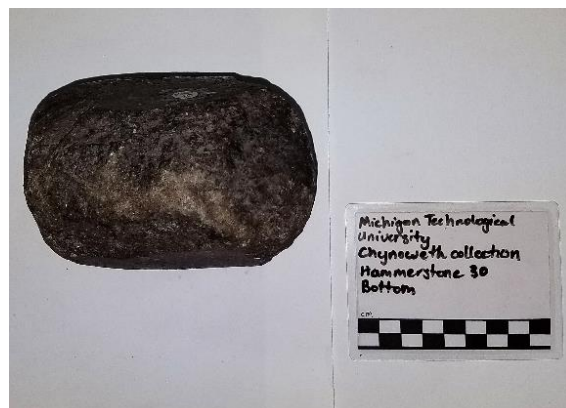 Michigan Technological
University
Chynoweth collection
Hammerstone 30
Bottom
cm